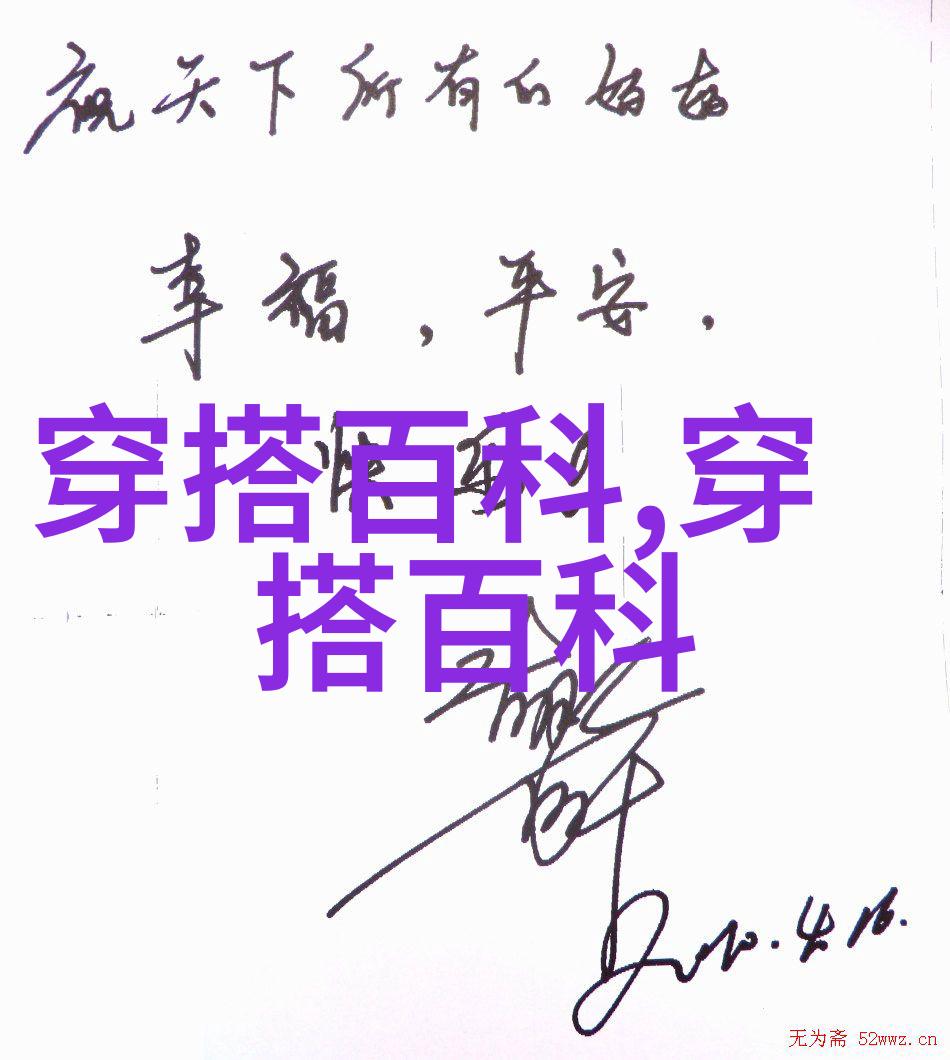 祝天下所有的妈妈
幸福，平安，
快乐！
穿搭百科,穿
搭百科
2010.4.16.
无为斋 52wwz.cn